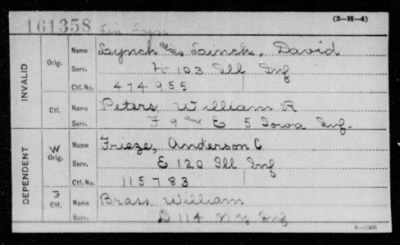 161358
(3-H-4)
INVALID
Orig. Name Lynch alias Linch, David
Serv. H 103 Ill Inf
Ctf. No. 474955
Ctf. Name Peters, William R
Serv. E 5 Iowa Inf.
DEPENDENT
W Orig. Name Frieze, Anderson C
Serv. E 120 Ill Inf
Ctf. No. 115783
Ctf. Name Brass, William
Serv. D 114 N.Y. Inf